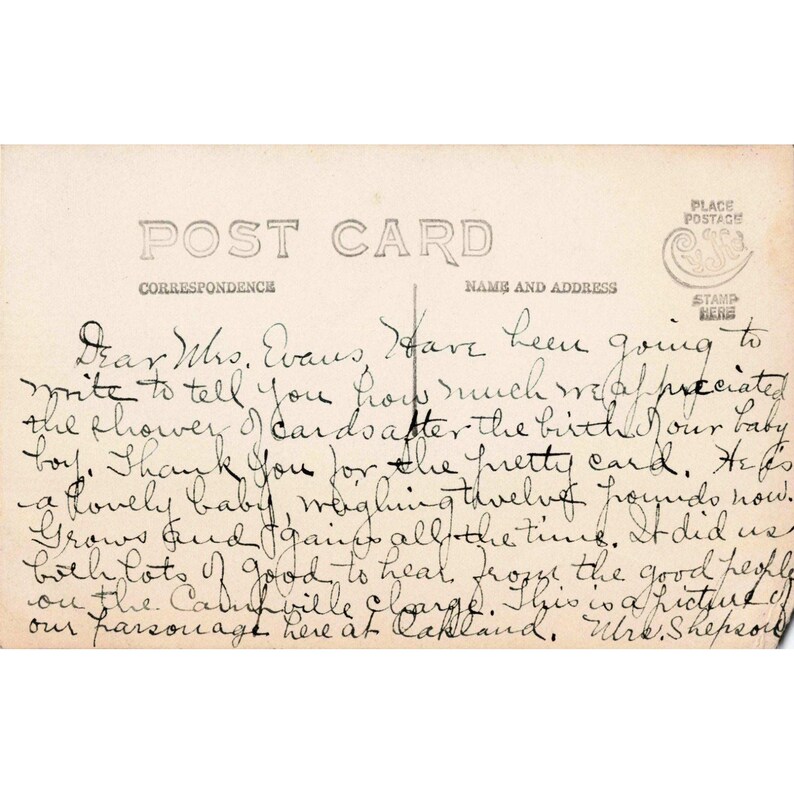 POST CARD
CORRESPONDENCE
NAME AND ADDRESS
PLACE
POSTAGE
STAMP
HERE
Dear Mrs. Evans, Have been going to
write to tell you how much we appreciated
the shower of cards after the birth of our baby
boy. Thank you for the pretty card. He is
a lovely baby, weighing twelve pounds now.
Grows and gains all the time. It did us
both lots of good to hear from the good people
on the charge. This is a picture of
our parsonage here at Oakland. Mrs. Shepson